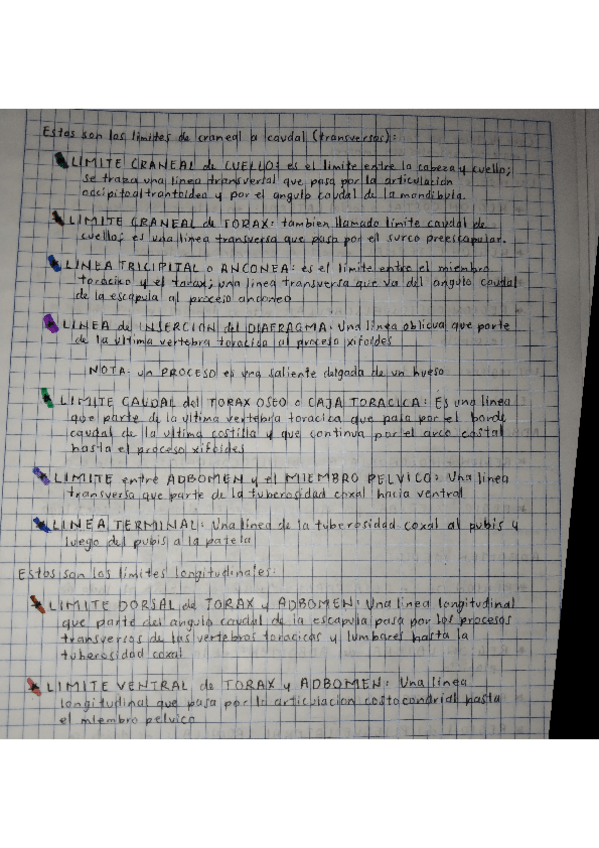 Estos son los limites de craneal a caudal (transversos):
LIMITE CRANEAL de CUELLO: es el limite entre la cabeza y cuello;
se traza una linea transversal que pasa por la articulación
occipitoaltrantoidea y por el angulo caudal de la mandibula.
LIMITE CRANEAL de TORAX: tambien llamado limite caudal de
cuello; es una linea transversa que pasa por el surco preescapular.
LINEA TRICIPITAL o ANCONEA: es el limite entre el miembro
toracico y el torax; una linea transversa que va del angulo caudal
de la escapula al proceso anconeo
LINEA de INSERCION del DIAFRAGMA: Una linea oblicua que parte
de la ultima vertebra toracica al proceso xifoides
NOTA: un PROCESO es una saliente delgada de un hueso
LIMITE CAUDAL del TORAX OSEO o CAJA TORACICA: Es una linea
que parte de la ultima vertebra toracica que pasa por el borde
caudal de la ultima costilla y que continua por el arco costal
hasta el proceso xifoides
LIMITE entre ADBOMEN y el MIEMBRO PELVICO: Una linea
transversa que parte de la tuberosidad coxal hacia ventral
LINEA TERMINAL: Una linea de la tuberosidad coxal al pubis y
luego del pubis a la patela
Estos son los limites longitudinales:
LIMITE DORSAL de TORAX y ADBOMEN: Una linea longitudinal
que parte del angulo caudal de la escapula pasa por los procesos
transversos de las vertebras toracicas y lumbares hasta la
tuberosidad coxal
LIMITE VENTRAL de TORAX y ADBOMEN: Una linea
longitudinal que pasa por la articulacion costocondrial hasta
el miembro pelvico